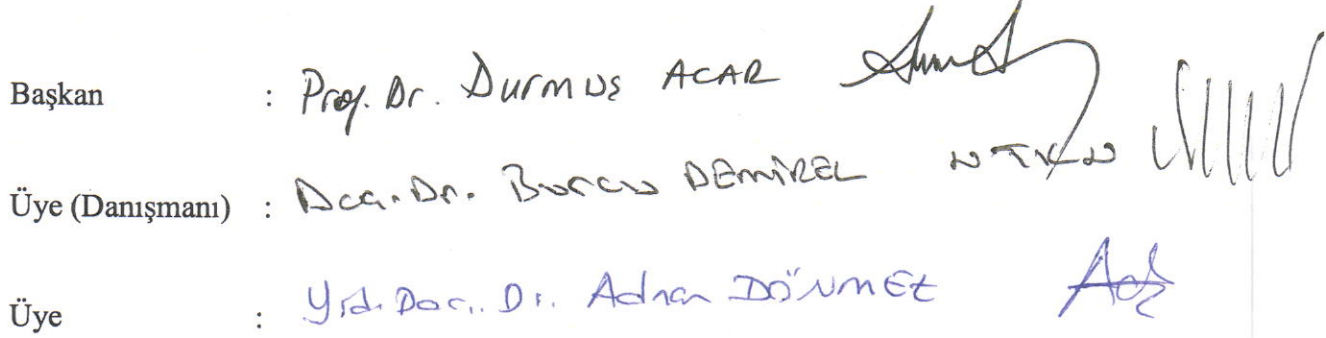 Başkan : Prof. Dr. Durmuş ACAR
Üye (Danışmanı) : Doç. Dr. Burcu DEMİREL UTKU
Üye : Yrd. Doç. Dr. Adnan DÖNMEZ